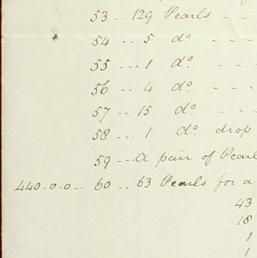 53 .. 129 Pearls - - -
54 ... 5 do - - -
55 ... 1 do - - -
56 ... 4 do - - -
57 .. 15 do - - -
58 ... 1 do drop
59 ... A pair of Pearl
440.0.0 .. 60 .. 63 Pearls for a
43
18
1
1